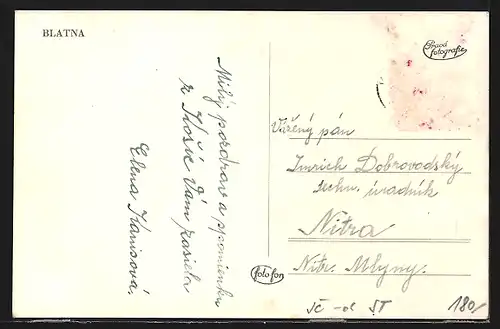 BLATNA
Milý pozdrav a spomienku
z Košíc Vám posiela
Elena Kanisová.
Pravá
fotografie
Vážený pán
Imrich Dobrovodský
techn. úradník
Nitra
Nitr. Mlyny.
fotofon
180,-